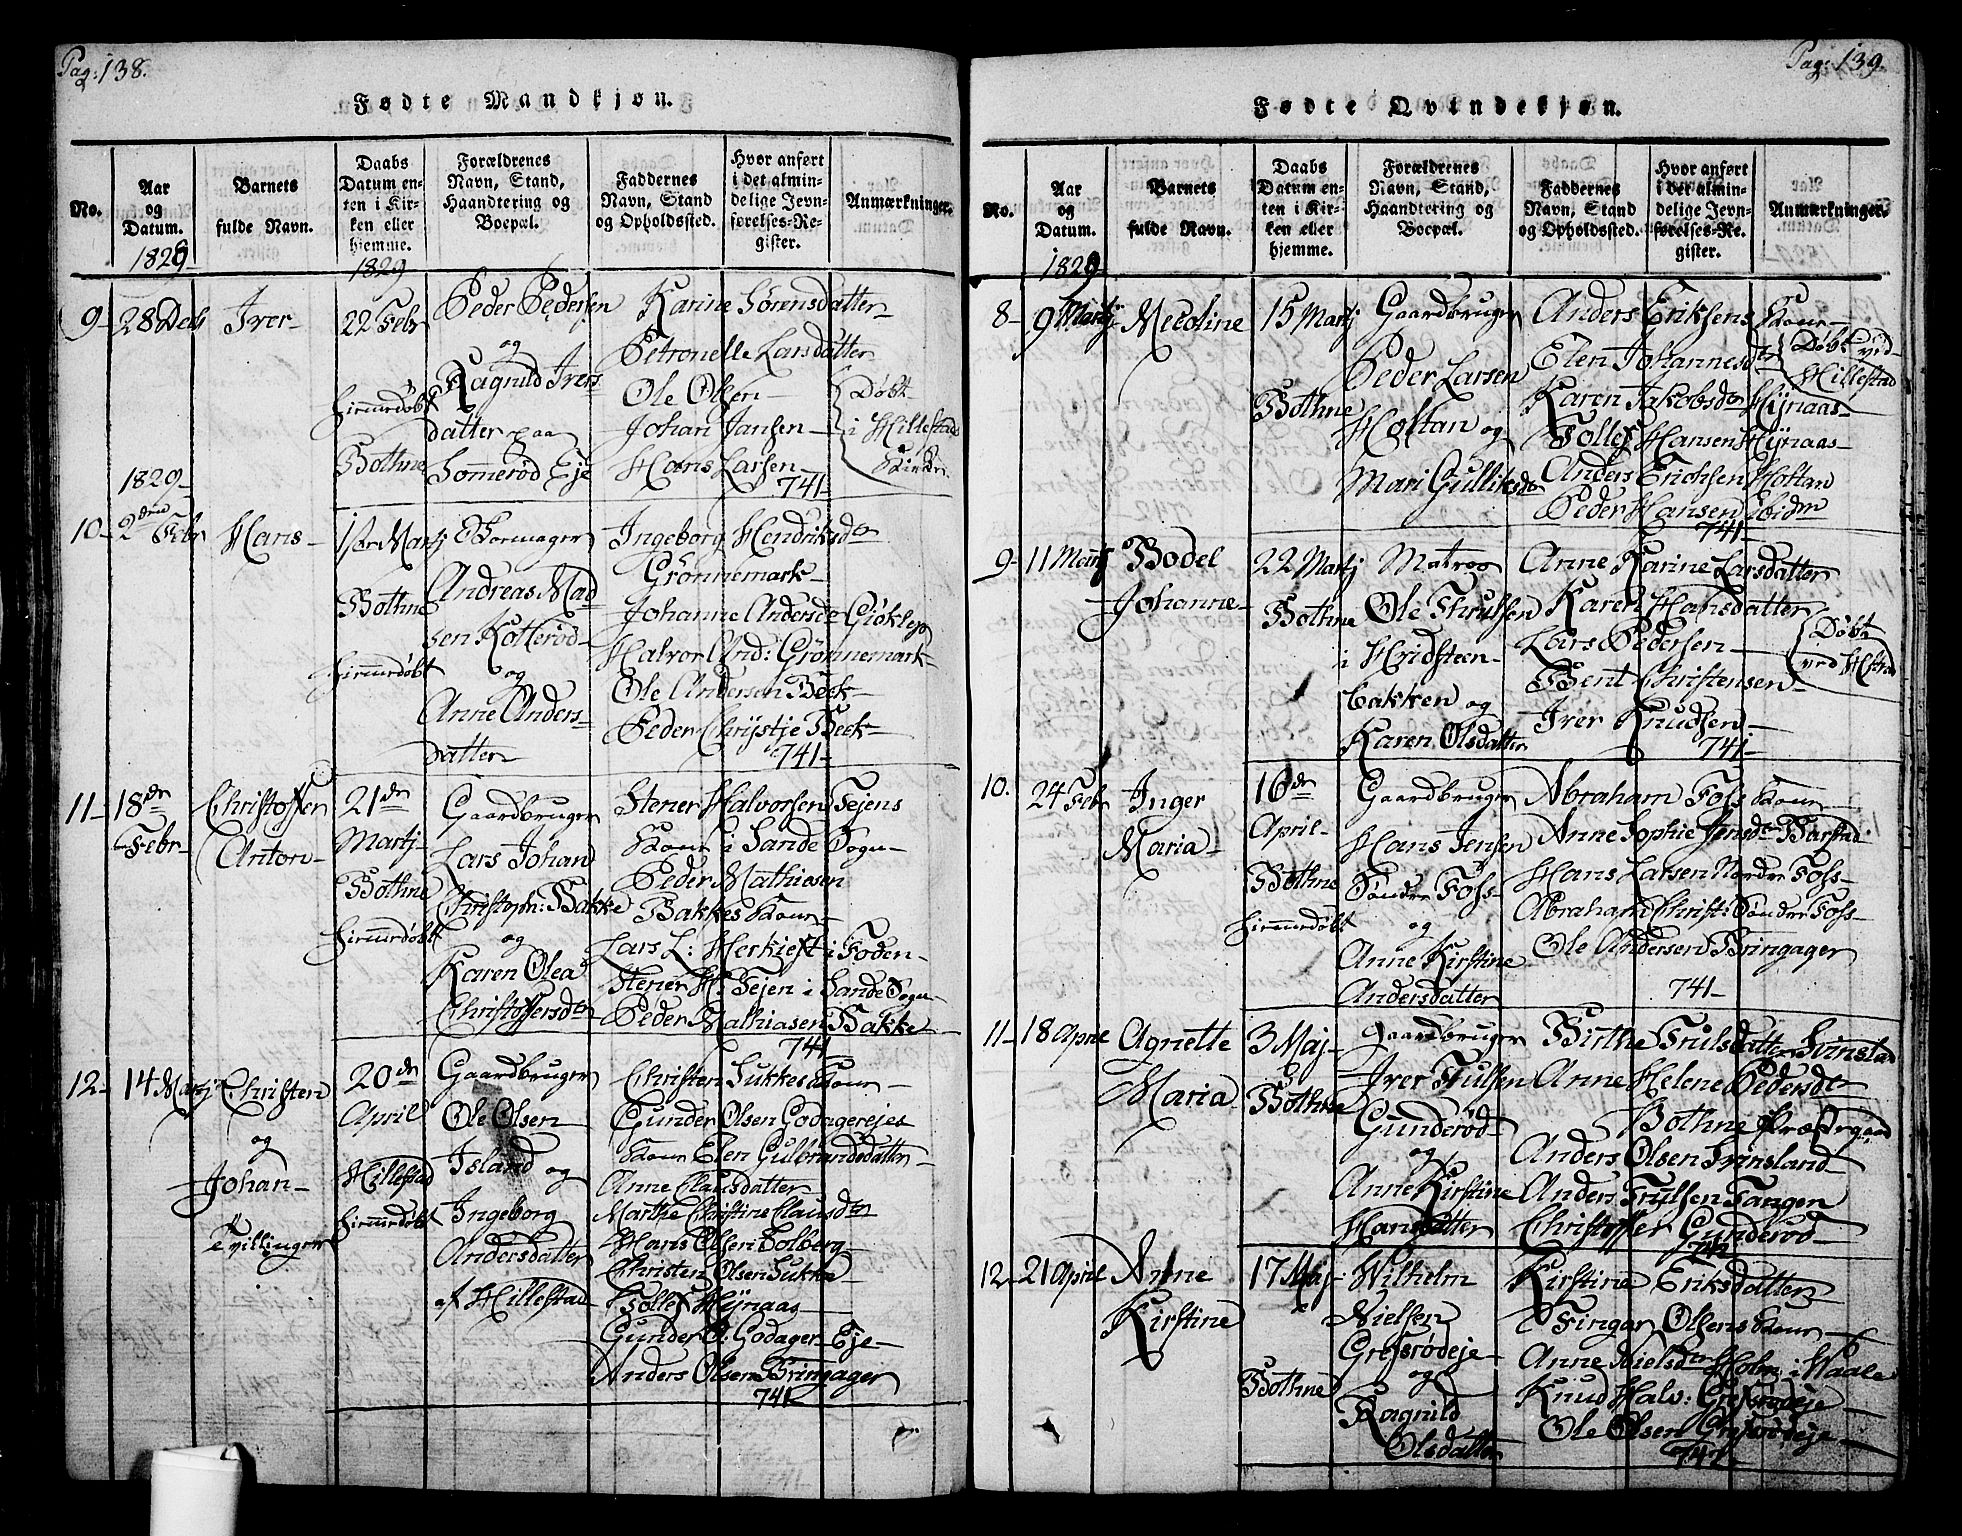 Pag: 138.
Fødte Mandkjøn.
No.
Aar
og
Datum.
1829
Barnets
fulde Navn.
Daabs
Datum en-
ten i Kir-
ken eller
hjemme.
1829
Forældrenes
Navn, Stand,
Haandtering og
Boepæl.
Faddernes
Navn, Stand
og Opholdssted.
Hvor anført
i det almin-
delige Jevn-
førelses-Re-
gister.
Anmærkninger.
9-
28 Decb
Iver-
22 Febr
hiemedøbt
Bothne
Peder Pedersen
og
Ragnild Ivers
datter paa
Sommerød Eje
Karine Sørensdatter
Petronelle Larsdatter
Ole Olsen-
Johan Jansen-
Hans Larsen-
741-
Døbt
i Hillestad
Kirke
1829-
10-
2den Febr
Hans-
1ste Martj
Bothne
hiemedøbt
Andreas Mad
sen Kotterød-
og
Anne Anders-
datter
Ingeborg Hendriksdr
Grønnemark-
Johanne Andersdr
Halvor And: Grønnemark-
Ole Andersen Bek-
Peder Christje Bek-
741-
11-
18de
Febr-
Christoffer
Anton-
21de
Martj-
Bothne
hiemedøbt
Gaardbruger
Lars Johan
Christoph: Bakke
og
Karen Olea
Christoffersdr
Stener Halvorsen Tejens
Kone i Sande Sogn-
Peder Mathiasen
Bakkes Kone-
Lars L: Herkiest i Foden-
Stener H: Tejen i Sande Sogn-
Peder Mathiasen Bakke
741
12-
14 Martj
Christen
og
Johan-
Tvillinger
20de
April
Hillestad
hiemedøbt
Gaardbruger
Ole Olsen
Island og
Ingeborg
Andersdatter
af Hillestad
Christen Sukkes Kone-
Gunder Olsen Godagerejes
Kone Elen Gulbrandsdatter-
Anne Clausdatter-
Marthe Christine Clausdr
Hans Olsen Solberg-
Christen Olsen Sukke
Tollef Hÿnaas-
Gunder O: Godager-Eje-
Anders Olsen Bringager
741-
Pag: 139.
Fødte Qvindekjøn.
No.
Aar
og
Datum.
1829-
Barnets
fulde Navn.
Daabs
Datum en-
ten i Kir-
ken eller
hjemme.
Forældrenes
Navn, Stand,
Haandtering og
Boepæl.
Faddernes
Navn, Stand
og Opholdssted.
Hvor anført
i det almin-
delige Jevn-
førelses-Re-
gister.
Anmærkninger.
8-
9 Martj
Nicoline
15 Martj
Bothne
Gaardbruger
Peder Larsen
Holtan og
Mari Gulliksdr
Anders Eriksens Kone-
Elen Johannesdr
Karen Jakobsdr Hÿnaas-
Tollef Hansen Hÿnaas-
Anders Erichsen Holtan
Peder Hansen
741-
Døbt ved
Hillestad
9-
11 Martj
Bodel
Johanne-
22 Martj
Bothne
Matros
Ole Thrulsen
i Hvidsteen-
bakken og
Karen Olsdatter
Anne Karine Larsdatter
Karen Hansdatter
Lars Pedersen-
Bent Christensen-
Iver Knudsen-
741-
Døbt
10.
24 Febr
Inger
Maria-
16de
April-
Bothne
hiemmedøbt
Gaardbruger
Hans Jensen
Søndre Foss-
og
Anne Kirstine
Andersdatter
Abraham Foss Kone-
Anne Sophie Jensdr Barstad
Hans Larsen Nordre Foss-
Abraham Christ: Søndre Foss-
Ole Andersen Bringager
741-
11-
18 April
Agnette
Maria
3 Maj-
Bothne
Gaardbruger
Iver Trulsen
Gunderød-
og
Anne Kirstine
Hansdatter
Birthe Trulsdatter
Anne Helene Pedersdr
Bothne Prædsgaard
Anders Olsen
Anders Trulsen Tangen
Christoffer Gunderød-
741
12-
21 April
Anne
Kirstine
17 Maj-
Bothne
Wilhelm
Nielsen
Gresrødeje-
og
Ragnild
Olsdatter
Kirstine Eriksdatter
Fingar Olsens Kone-
Anne Nielsdr Holm i Waale
Knud Halv: Gresrødeje-
Ole Olsen Gresrødeje-
741-